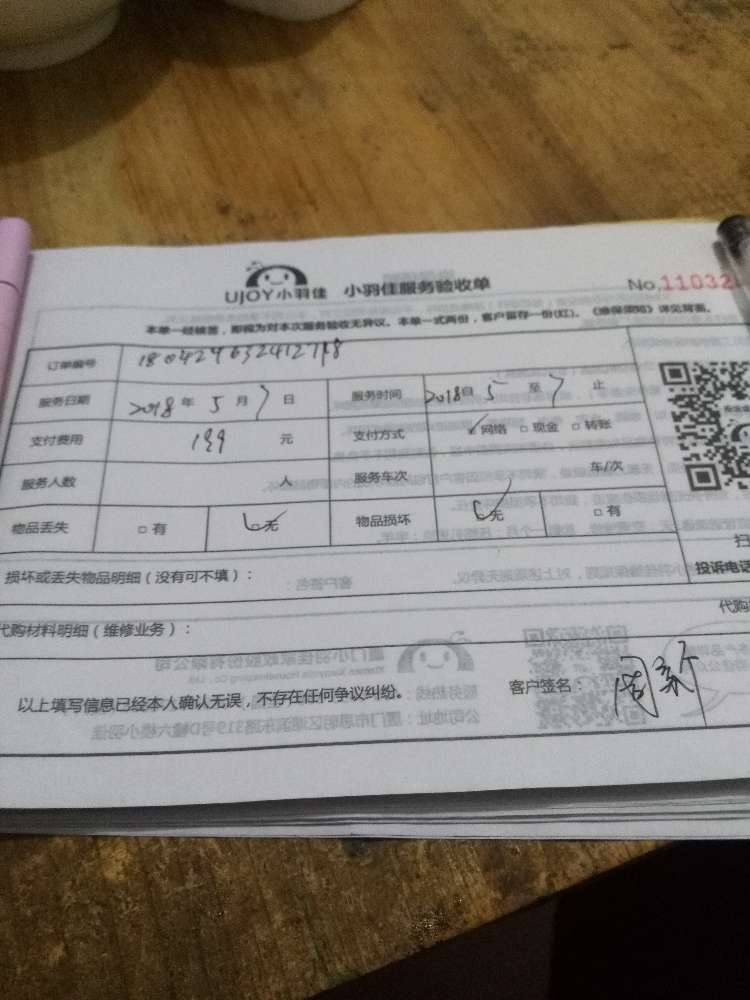 UJOY小羽佳 小羽佳服务验收单 No.11032
本单一经核签，即视为对本次服务验收无异议。本单一式两份，客户留存一份(红)。《维保须知》详见背面。
订单编号
服务日期 2018年5月7日 服务时间 2018自5至7止
支付费用 199元 支付方式 ☑网络 □现金 □转账
服务人数 人 服务车次 车/次
物品丢失 □有 ☑无 物品损坏 ☑无 □有
损坏或丢失物品明细（没有可不填）：
投诉电话
代购材料明细（维修业务）： 代购
以上填写信息已经本人确认无误，不存在任何争议纠纷。 客户签名：